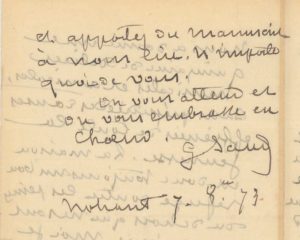 et apportez du manuscrit
à nous lire. N'importe
quoi de vous.
On vous attend et
on vous embrasse en
chœur.
G Sand
Nohant 7 73